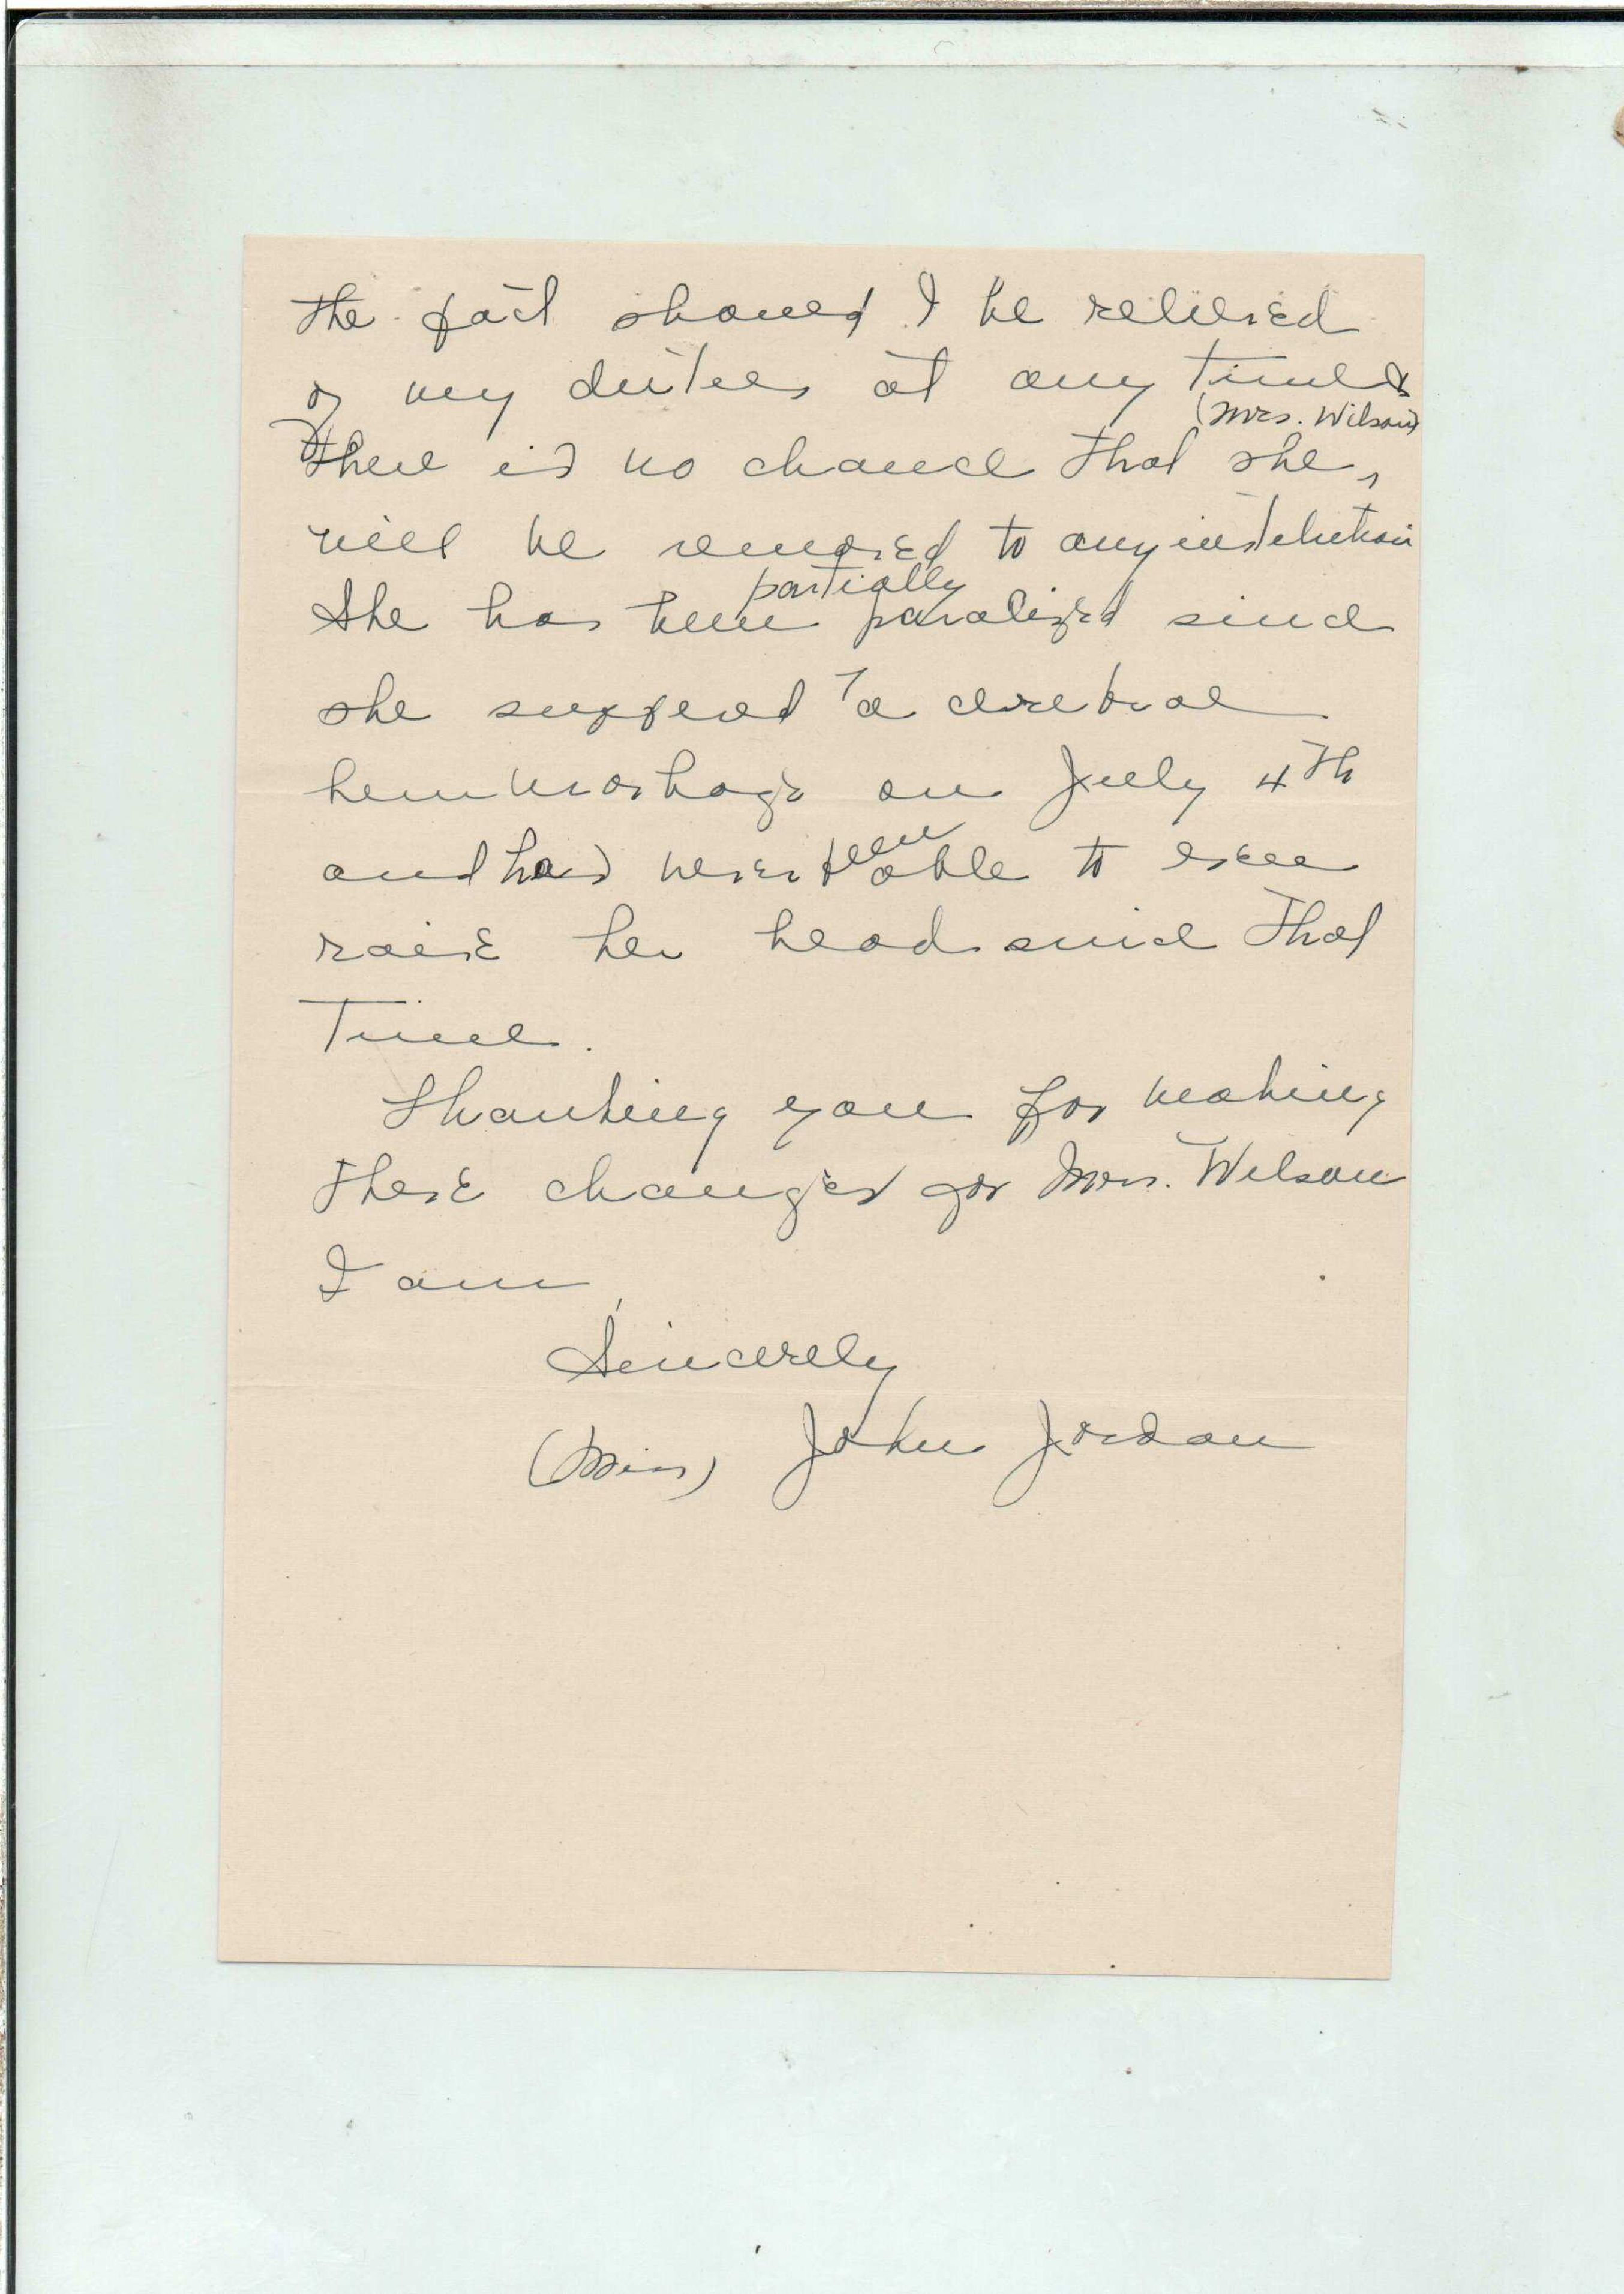 the fact should I be relieved
of my duties at any time &
(Mrs. Wilson)
there is no chance that she,
will be removed to any institution
partially
She has been paralized since
she suffered a cerebral
hemmorhage on July 4th
been
and has never able to even
raise her head since that
time.
Thanking you for making
these changes for Mrs. Wilson
I am,
Sincerely
(Miss) John Jordan